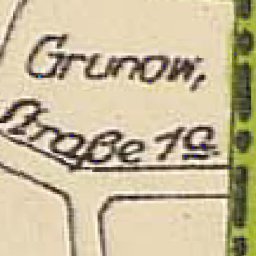 Grunow,
straße 1a.